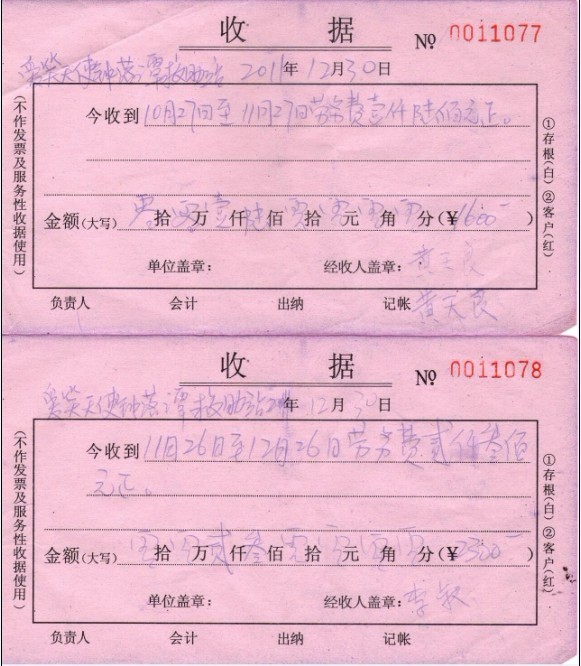 收 据 № 0011077
爱荣天使钟落潭救助站 2011年12月30日
今收到10月27日至11月27日劳务费壹仟陆佰元正。
金额(大写) 零拾零万壹仟陆佰零拾零元零角零分(¥1600— )
单位盖章: 经收人盖章: 黄天良
黄天良
负责人 会计 出纳 记帐
(不作发票及服务性收据使用)
①存根(白)②客户(红)
收 据 № 0011078
钟落潭救助站2011年12月30日
今收到11月26日至12月26日劳务费贰仟叁佰
元正。
金额(大写) 零拾零万贰仟叁佰零拾零元零角零分(¥2300— )
单位盖章: 经收人盖章: 李
负责人 会计 出纳 记帐
(不作发票及服务性收据使用)
①存根(白)②客户(红)